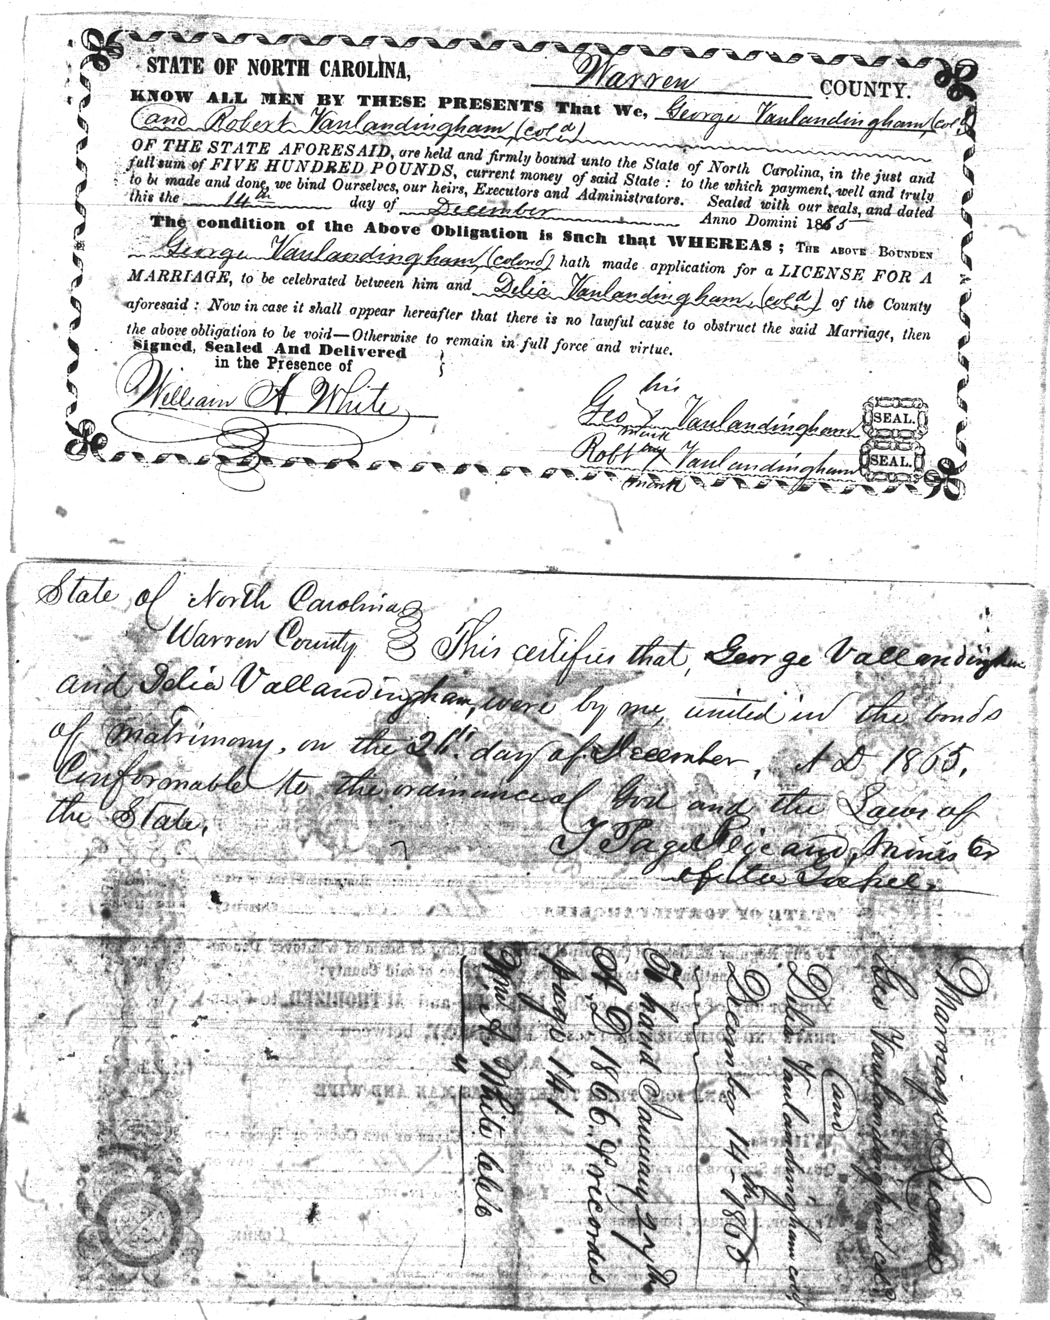 STATE OF NORTH CAROLINA, Warren COUNTY.
KNOW ALL MEN BY THESE PRESENTS That We, George Vanlandingham (cold)
(and Robert Vanlandingham (cold)
OF THE STATE AFORESAID, are held and firmly bound unto the State of North Carolina, in the just and
full sum of FIVE HUNDRED POUNDS, current money of said State: to the which payment, well and truly
to be made and done, we bind Ourselves, our heirs, Executors and Administrators. Sealed with our seals, and dated
this the 14th day of December Anno Domini 1865
The condition of the Above Obligation is Such that WHEREAS; THE ABOVE BOUNDEN
George Vanlandingham (colored) hath made application for a LICENSE FOR A
MARRIAGE, to be celebrated between him and Delia Vanlandingham (cold) of the County
aforesaid: Now in case it shall appear hereafter that there is no lawful cause to obstruct the said Marriage, then
the above obligation to be void—Otherwise to remain in full force and virtue.
Signed, Sealed And Delivered
in the Presence of
William A White
his
Geo x Vanlandingham SEAL.
mark
Robt Vanlandingham SEAL.
mark
State of North Carolina
Warren County This certifies that, George Vallandingham
and Delia Vallandingham, were by me, united in the bonds
of matrimony, on the 26th day of December, A D 1865,
Conformable to the ordinance of God and the Laws of
the State.
T Page Ricaud, Minister
of the Gospel.
Marriage License
Geo Vanlandingham cold
(and)
Delia Vanlandingham cold
December 14th 1865
To hand January 27th
A.D. 1866. & recorded
page 141
Wm A White Clk
STATE OF NORTH CAROLINA